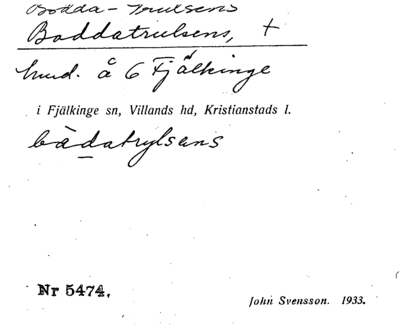 Bodda-Truelsens
Boddatruelsens, +
hmd. å 6 Fjälkinge
i Fjälkinge sn, Villands hd, Kristianstads l.
bådatrylsens
Nr 5474.
John Svensson. 1933.